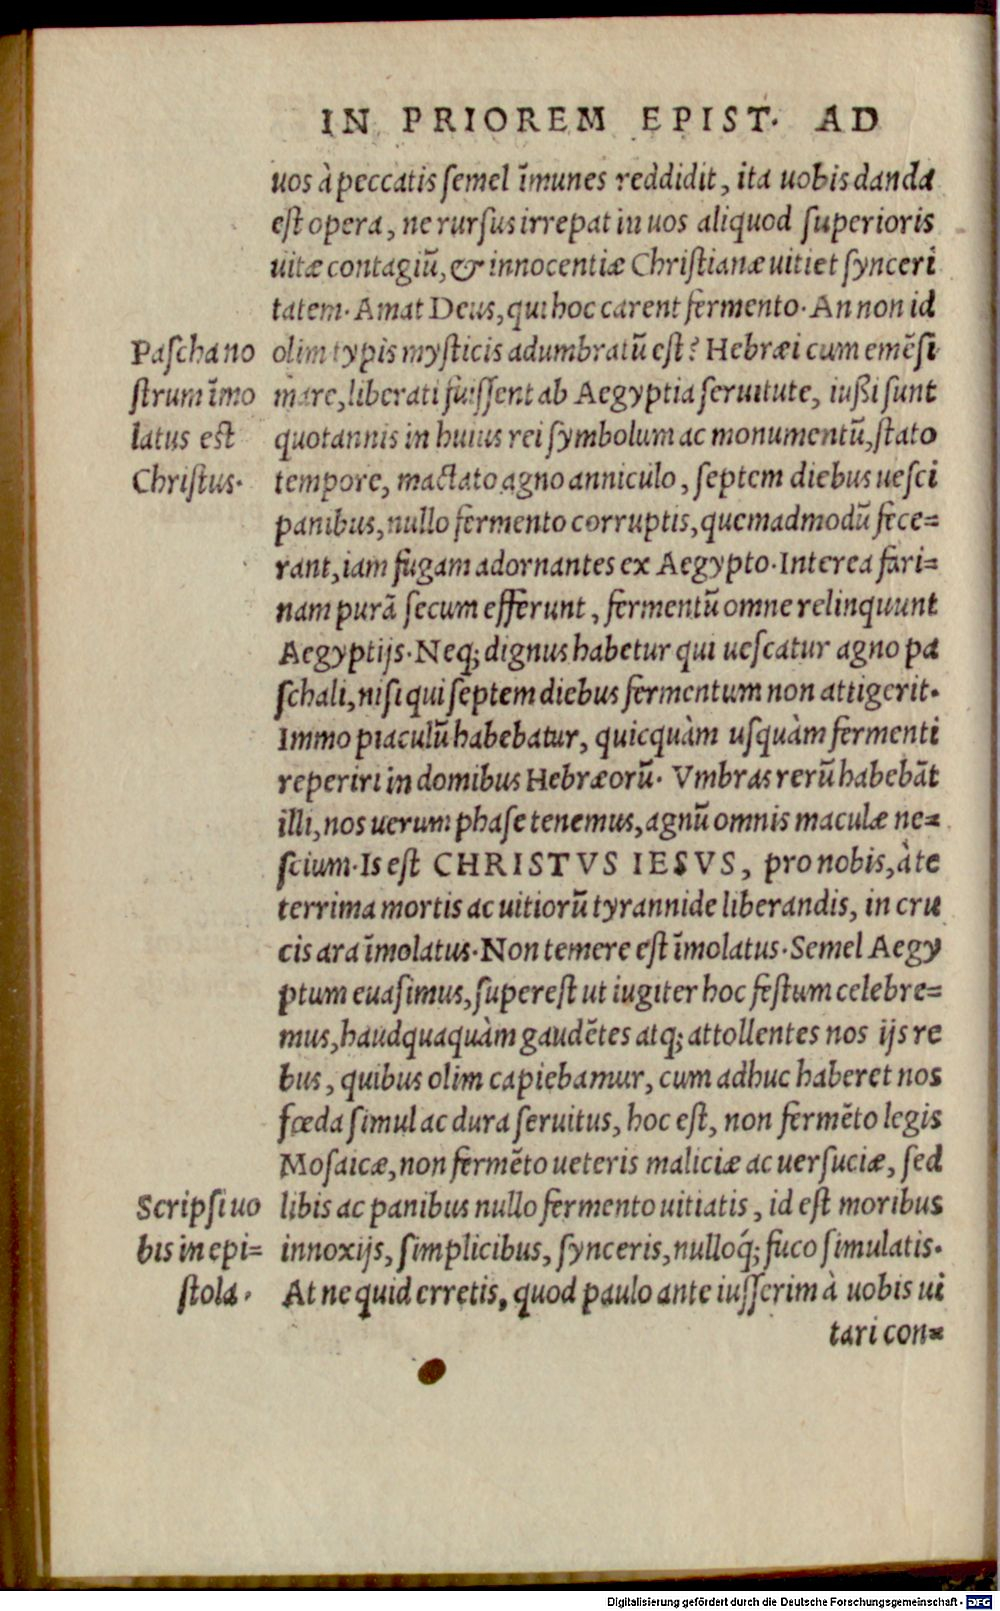 IN PRIOREM EPIST. AD
uos à peccatis ſemel īmunes reddidit, ita uobis danda
eſt opera, ne rurſus irrepat in uos aliquod ſuperioris
uitæ contagiū, & innocentiæ Chriſtianæ uitiet ſynceri
tatem. Amat Deus, qui hoc carent fermento. An non id
Paſcha no
ſtrum īmo
latus est
Chriſtus.
olim typis myſticis adumbratū eſt? Hebræi cum emēſi
mare, liberati fuiſſent ab Aegyptia ſeruitute, iußi ſunt
quotannis in huius rei ſymbolum ac monumentū, ſtato
tempore, mactato agno anniculo, ſeptem diebus ueſci
panibus, nullo fermento corruptis, quemadmodū fece=
rant, iam fugam adornantes ex Aegypto. Interea fari=
nam purā ſecum efferunt, fermentū omne relinquunt
Aegyptijs. Neq; dignus habetur qui ueſcatur agno pa
ſchali, niſi qui ſeptem diebus fermentum non attigerit.
Immo piaculū habebatur, quicquàm uſquàm fermenti
reperiri in domibus Hebræorū. Vmbras rerū habebāt
illi, nos uerum phaſe tenemus, agnū omnis maculæ ne=
ſcium. Is eſt CHRISTVS IESVS, pro nobis, à te
terrima mortis ac uitiorū tyrannide liberandis, in cru
cis ara īmolatus. Non temere eſt īmolatus. Semel Aegy
ptum euaſimus, ſupereſt ut iugiter hoc feſtum celebre=
mus, haudquaquàm gaudētes atq; attollentes nos ijs re
bus, quibus olim capiebamur, cum adhuc haberet nos
fœda ſimul ac dura ſeruitus, hoc eſt, non fermēto legis
Moſaicæ, non fermēto ueteris maliciæ ac uerſuciæ, ſed
Scripſi uo
bis in epi=
ſtola.
libis ac panibus nullo fermento uitiatis, id eſt moribus
innoxijs, ſimplicibus, ſynceris, nulloq́; fuco ſimulatis.
At ne quid erretis, quod paulo ante iuſſerim à uobis ui
tari con=
Digitalisierung gefördert durch die Deutsche Forschungsgemeinschaft - DFG